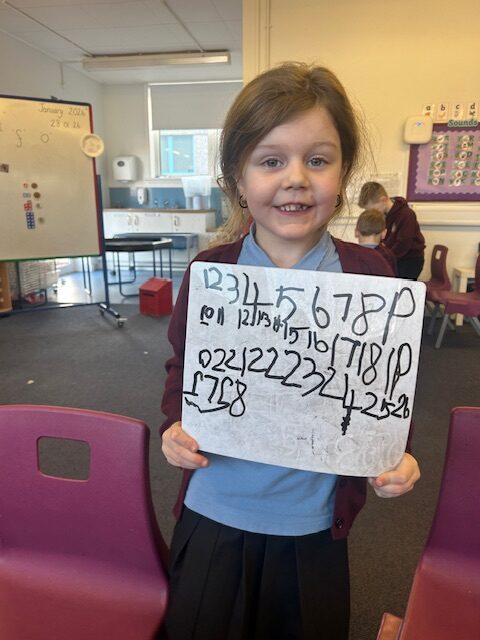 January 2026
28 01 26
a b c d
Sounds
1 2 3 4 5 6 7 8 9
10 11 12 13 14 15 16 17 18 19
0 2 21 22 23 24 25 26
27 28